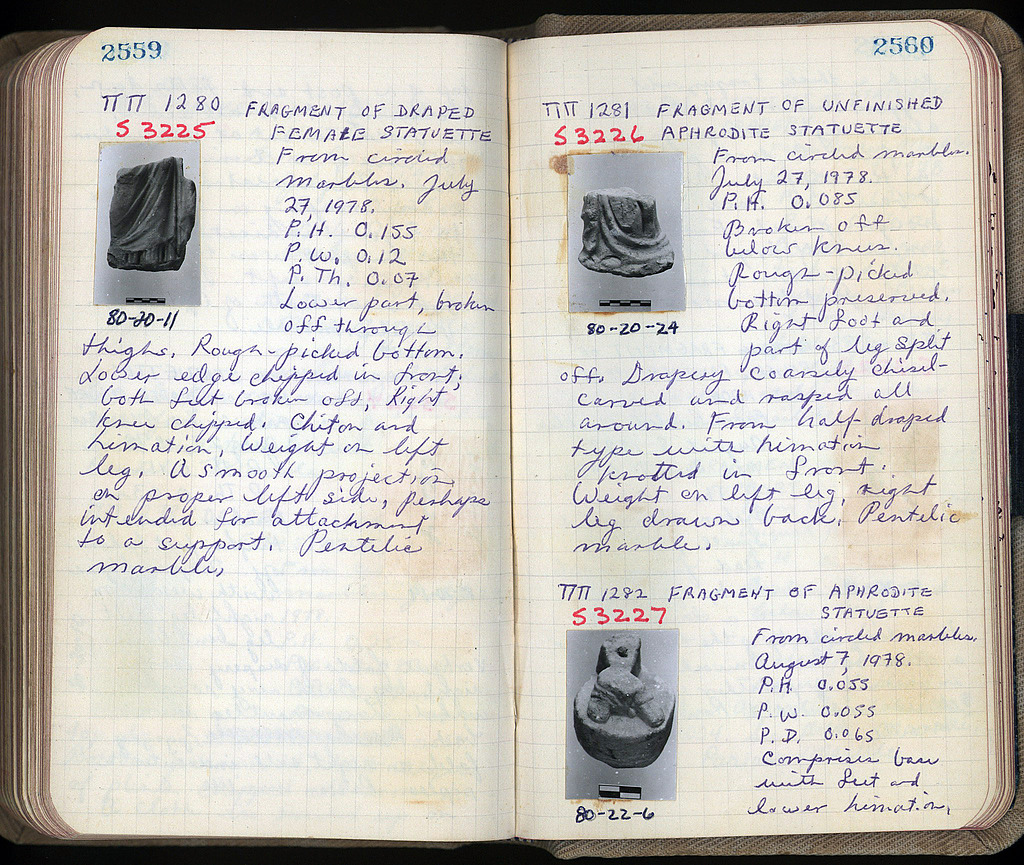 2559
ΠΠ 1280 FRAGMENT OF DRAPED
S 3225 FEMALE STATUETTE
From circled
marbles. July
27, 1978.
P.H. 0.155
P.W. 0.12
P.Th. 0.07
Lower part, broken
off through
80-20-11
thighs. Rough-picked bottom.
Lower edge chipped in front;
both feet broken off. Right
knee chipped. Chiton and
himation. Weight on left
leg. A smooth projection
on proper left side, perhaps
intended for attachment
to a support. Pentelic
marble.
2560
ΠΠ 1281 FRAGMENT OF UNFINISHED
S 3226 APHRODITE STATUETTE
From circled marbles.
July 27, 1978.
P.H. 0.085
Broken off
below knees.
Rough-picked
bottom preserved.
Right foot and
80-20-24
part of leg split
off. Drapery coarsely chisel-
carved and rasped all
around. From half-draped
type with himation
knotted in front.
Weight on left leg, right
leg drawn back. Pentelic
marble.
ΠΠ 1282 FRAGMENT OF APHRODITE
S 3227 STATUETTE
From circled marbles.
August 7, 1978.
P.H. 0.055
P.W. 0.055
P.D. 0.065
Comprises base
with feet and
lower himation,
80-22-6